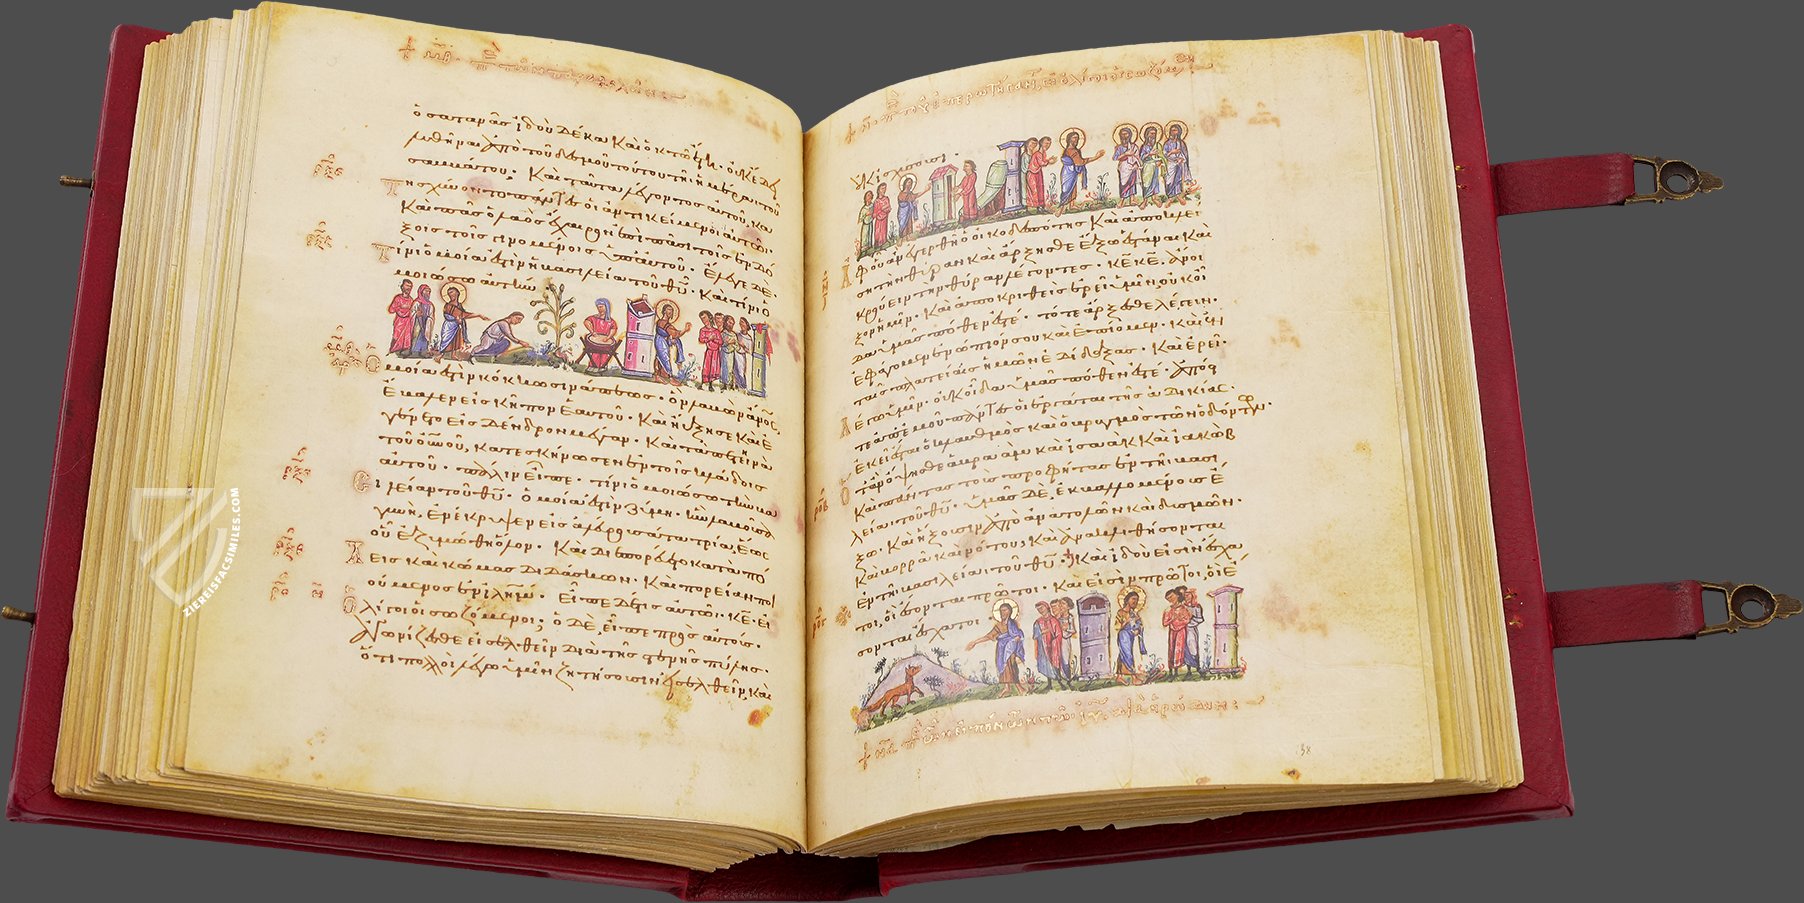 ὁ σατανᾶς ἰδοὺ δέκα καὶ ὀκτὼ ἔτη. οὐκ ἔδει
λυθῆναι ἀπὸ τοῦ δεσμοῦ τούτου τῇ ἡμέρᾳ τοῦ
σαββάτου; Καὶ ταῦτα λέγοντος αὐτοῦ, κα
τησχύνοντο πάντες οἱ ἀντικείμενοι αὐτῷ.
Καὶ πᾶς ὁ λαὸς ἔχαιρεν ἐπὶ πᾶσι τοῖς ἐνδό
ξοις τοῖς γινομένοις ὑπ' αὐτοῦ. ἔλεγε δέ.
Τίνι ὁμοία ἐστὶν ἡ βασιλεία τοῦ θ̅υ̅. Καὶ τίνι ὁ
μοιώσω αὐτήν.
Ὁμοία ἐστὶν κόκκῳ σινάπεως. ὃν λαβὼν ἄ̅ν̅ο̅ς̅,
ἔβαλεν εἰς κῆπον ἑαυτοῦ. Καὶ ηὔξησε καὶ ἐ
γένετο εἰς δένδρον μέγαν. Καὶ τὰ πετεινὰ
τοῦ ο̅υ̅ν̅ο̅υ̅, κατεσκήνωσεν ἐν τοῖς κλάδοις
αὐτοῦ. πάλιν εἶπε. τίνι ὁμοιώσω τὴν βα
σιλείαν τοῦ θ̅υ̅. ὁμοία ἐστὶν ζύμῃ. ἣν λαβοῦσα
γυνὴ, ἐνέκρυψεν εἰς ἀλεύρου σάτα τρία, ἕως
οὗ ἐζυμώθη ὅλον. Καὶ διεπορεύετο κατὰ πό
λεις καὶ κώμας διδάσκων. Καὶ πορείαν ποι
ούμενος ι̅λ̅η̅μ̅. Εἶπε δέ τις αὐτῷ. κ̅ε̅. εἰ
ὀλίγοι οἱ σωζόμενοι; ὁ δὲ, εἶπε πρὸς αὐτούς.
Ἀγωνίζεσθε εἰσελθεῖν διὰ τῆς στενῆς πύλης.
ὅτι πολλοὶ λέγω ὑμῖν ζητήσουσιν εἰσελθεῖν, καὶ
οὐκ ἰσχύσουσι.
Ἀφ' οὗ ἂν ἐγερθῇ ὁ οἰκοδεσπότης καὶ ἀποκλεί
σῃ τὴν θύραν καὶ ἄρξησθε ἔξω ἑστάναι καὶ
κρούειν τὴν θύραν λέγοντες. κ̅ε̅ κ̅ε̅. ἄνοι
ξον ἡμῖν. Καὶ ἀποκριθεὶς ἐρεῖ ὑμῖν. οὐκ οἶ
δα ὑμᾶς πόθεν ἐστέ. τότε ἄρξεσθε λέγειν.
ἐφάγομεν ἐνώπιόν σου καὶ ἐπίομεν. Καὶ ἐν
ταῖς πλατείαις ἡμῶν ἐδίδαξας. Καὶ ἐρεῖ.
λέγω ὑμῖν. οὐκ οἶδα ὑμᾶς πόθεν ἐστέ. ἀπόσ
τητε ἀπ' ἐμοῦ πάντες οἱ ἐργάται τῆς ἀδικίας.
ἐκεῖ ἔσται ὁ κλαυθμὸς καὶ ὁ βρυγμὸς τῶν ὀδόντων.
ὅταν ὄψησθε ἀβραὰμ καὶ ἰσαὰκ καὶ ἰακὼβ
καὶ πάντας τοὺς προφήτας ἐν τῇ βασι
λείᾳ τοῦ θ̅υ̅. ὑμᾶς δὲ, ἐκβαλλομένους ἔ
ξω. Καὶ ἥξουσιν ἀπὸ ἀνατολῶν καὶ δυσμῶν.
καὶ βορρᾶ καὶ νότου, καὶ ἀνακλιθήσονται
ἐν τῇ βασιλείᾳ τοῦ θ̅υ̅. Καὶ ἰδοὺ εἰσὶν ἔσχα
τοι, οἳ ἔσονται πρῶτοι. Καὶ εἰσὶν πρῶτοι, οἳ ἔ
σονται ἔσχατοι
58
ZIEREISFACSIMILES.COM